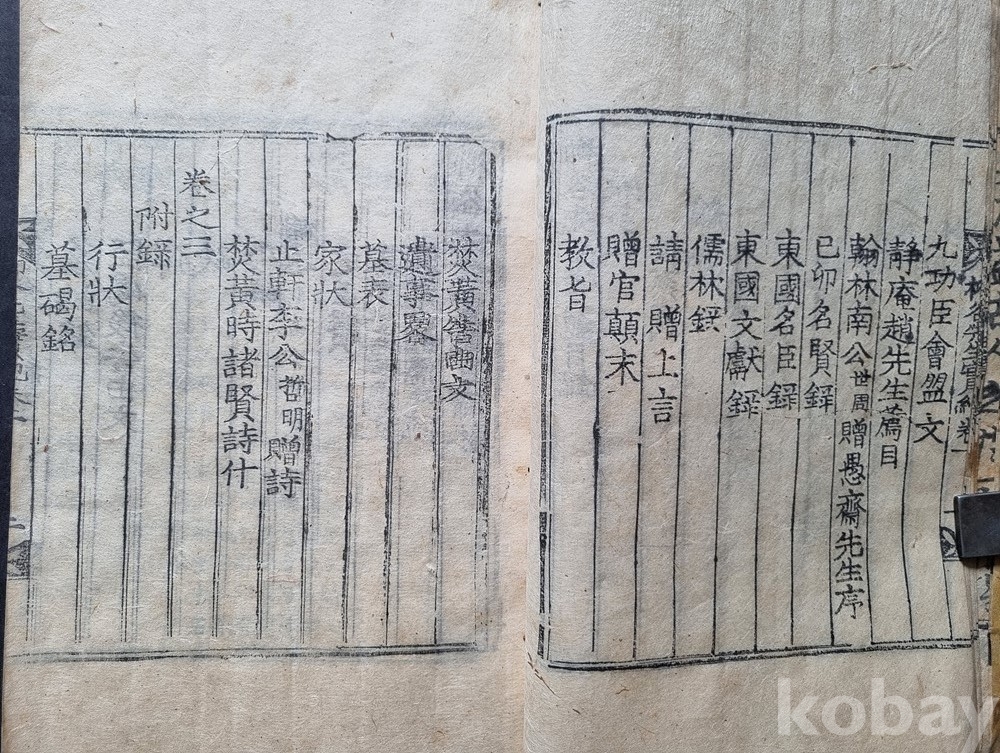 九功臣會盟文
靜庵趙先生薦目
翰林南公世周贈愚齋先生序
己卯名賢錄
東國名臣錄
東國文獻錄
儒林錄
請 贈上言
贈官顛末
教旨
焚黃告幽文
遺事畧
墓表
家狀
止軒李公哲明贈詩
焚黃時諸賢詩什
卷之三
附錄
行狀
墓碣銘
kobay